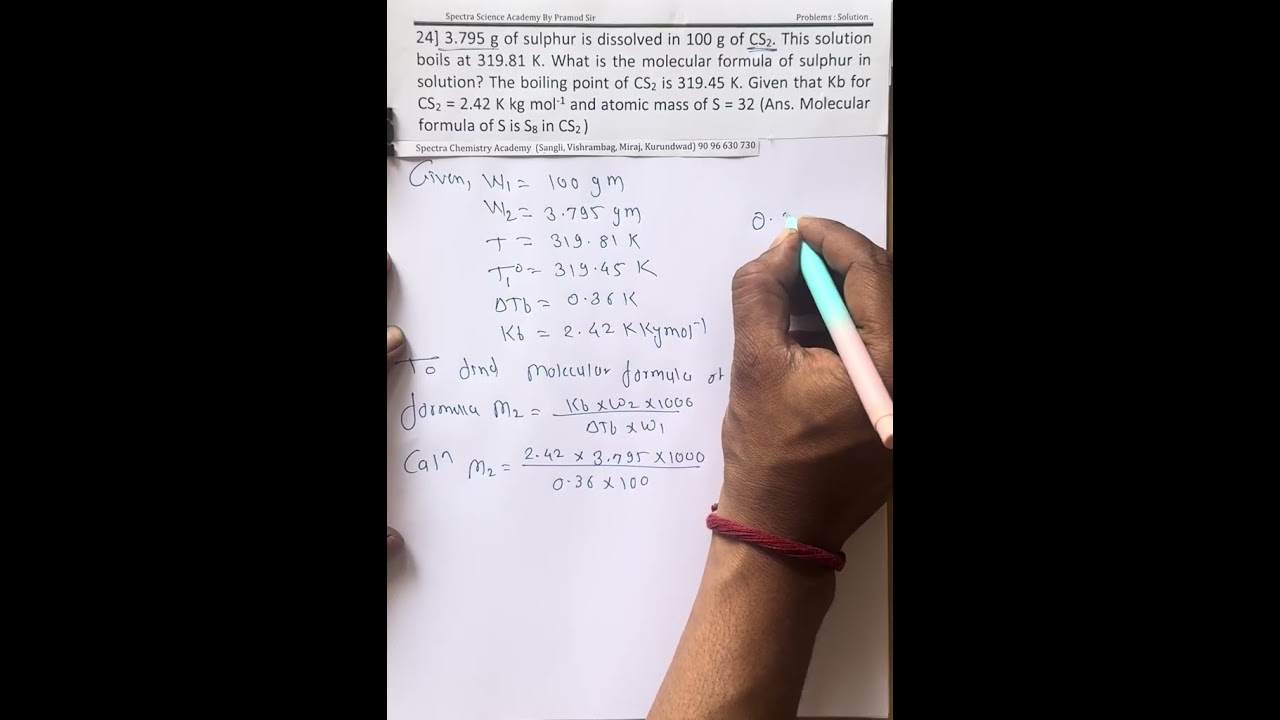 Spectra Science Academy By Pramod Sir Problems : Solution .
24] 3.795 g of sulphur is dissolved in 100 g of CS₂. This solution
boils at 319.81 K. What is the molecular formula of sulphur in
solution? The boiling point of CS₂ is 319.45 K. Given that Kb for
CS₂ = 2.42 K kg mol⁻¹ and atomic mass of S = 32 (Ans. Molecular
formula of S is S₈ in CS₂ )
Spectra Chemistry Academy (Sangli, Vishrambag, Miraj, Kurundwad) 90 96 630 730
Given, W₁ = 100 gm
W₂ = 3.795 gm
0.
T = 319.81 K
T₁⁰ = 319.45 K
ΔTb = 0.36 K
Kb = 2.42 K Kgmol⁻¹
To find molecular formula of
formula M₂ = Kb × W₂ × 1000
ΔTb × W₁
Calⁿ M₂ = 2.42 × 3.795 × 1000
0.36 × 100